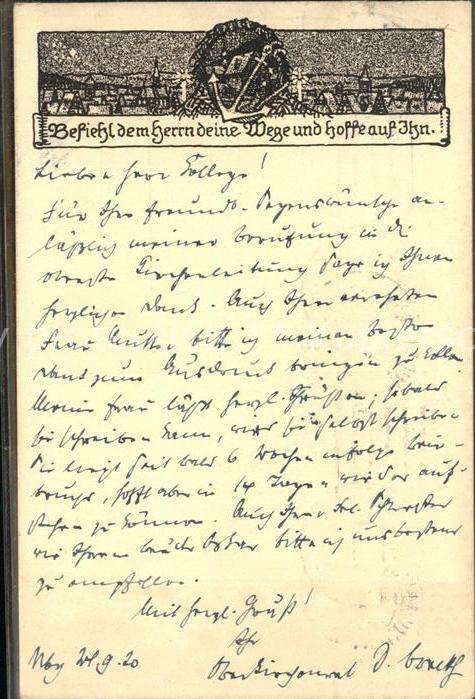 Befiehl dem Herrn deine Wege und hoffe auf Ihn.
Lieber Herr Kollege!
Für Ihre freundl. Segenswünsche an-
läßlich meiner Berufung in die
oberste Kirchenleitung sage ich Ihnen
herzlichen Dank. Auch Ihrer verehrten
Frau Mutter bitte ich meinen besten
Dank zum Ausdruck bringen zu wollen.
Meine Frau läßt herzl. Grüßen, sobald
sie schreiben kann, wird sie selbst schreiben
Sie liegt seit bald 6 Wochen infolge Bein-
bruchs, hofft aber in 14 Tagen wieder auf-
stehen zu können. Auch Ihrer Frl. Schwester
wie Ihrem Bruder bitte ich uns bestens
zu empfehlen.
Mit herzl. Gruß!
Ihr
Oberkirchenrat D.
Nbg 9.20